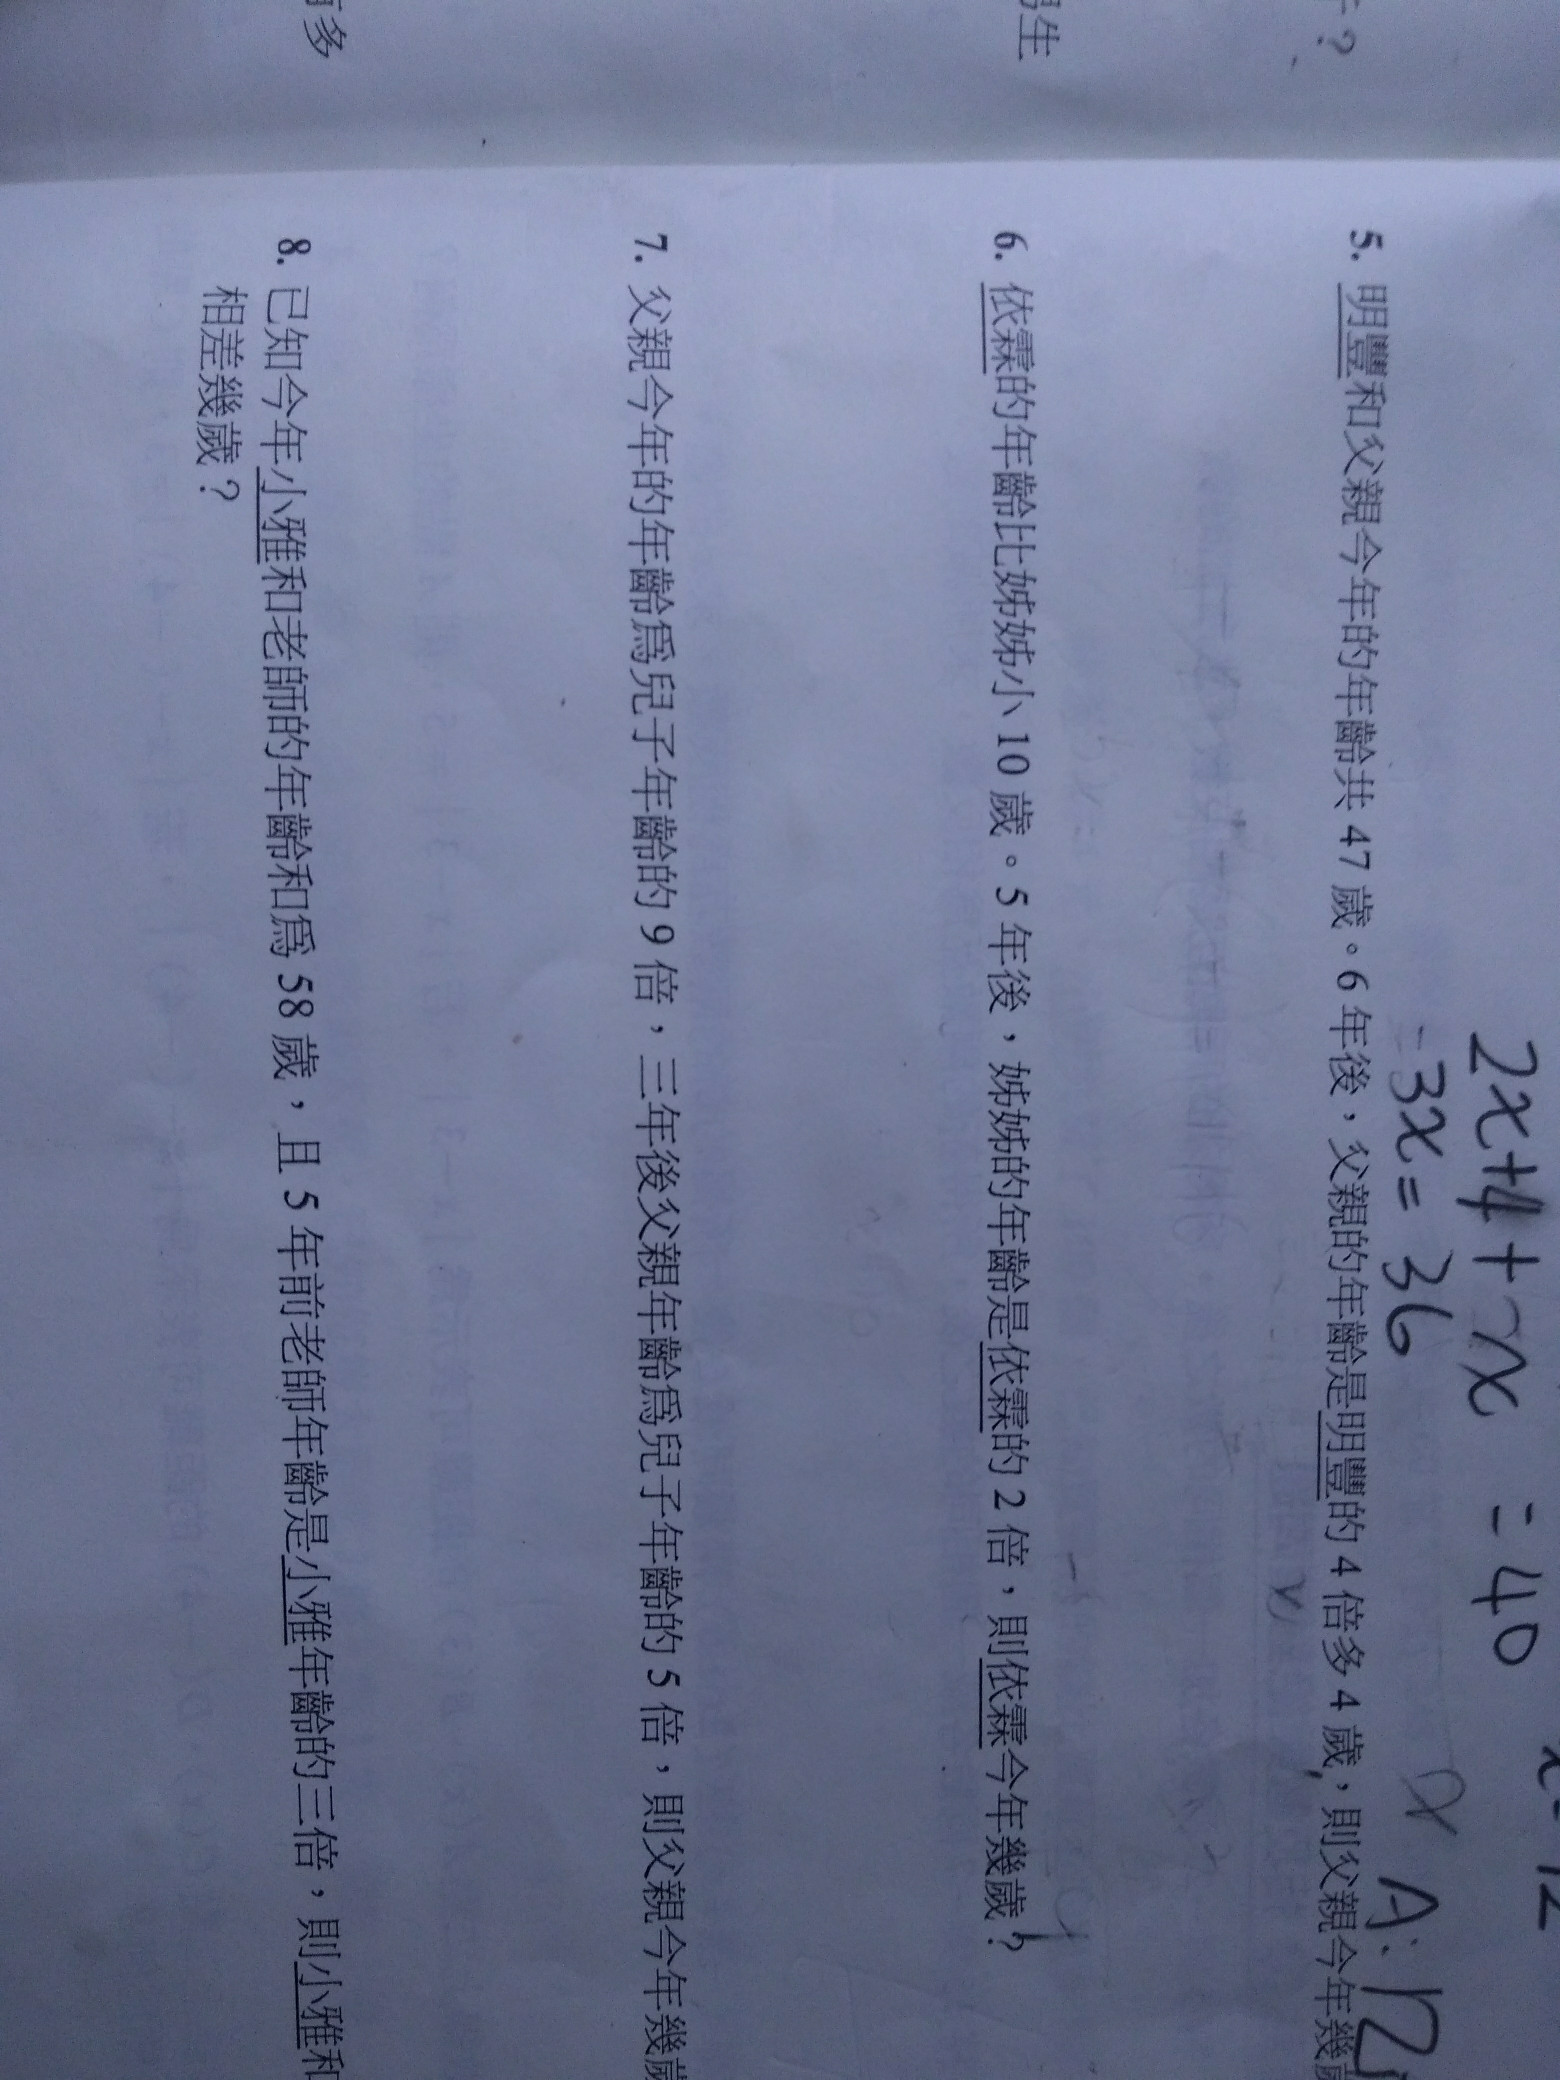 2x+4+x=40
3x=36
A:12
5. 明豐和父親今年的年齡共 47 歲。6 年後，父親的年齡是明豐的 4 倍多 4 歲，則父親今年幾歲
6. 依霖的年齡比姊姊小 10 歲。5 年後，姊姊的年齡是依霖的 2 倍，則依霖今年幾歲？
7. 父親今年的年齡爲兒子年齡的 9 倍，三年後父親年齡爲兒子年齡的 5 倍，則父親今年幾歲
8. 已知今年小雅和老師的年齡和爲 58 歲，且 5 年前老師年齡是小雅年齡的三倍，則小雅和
相差幾歲？
？
男生
多